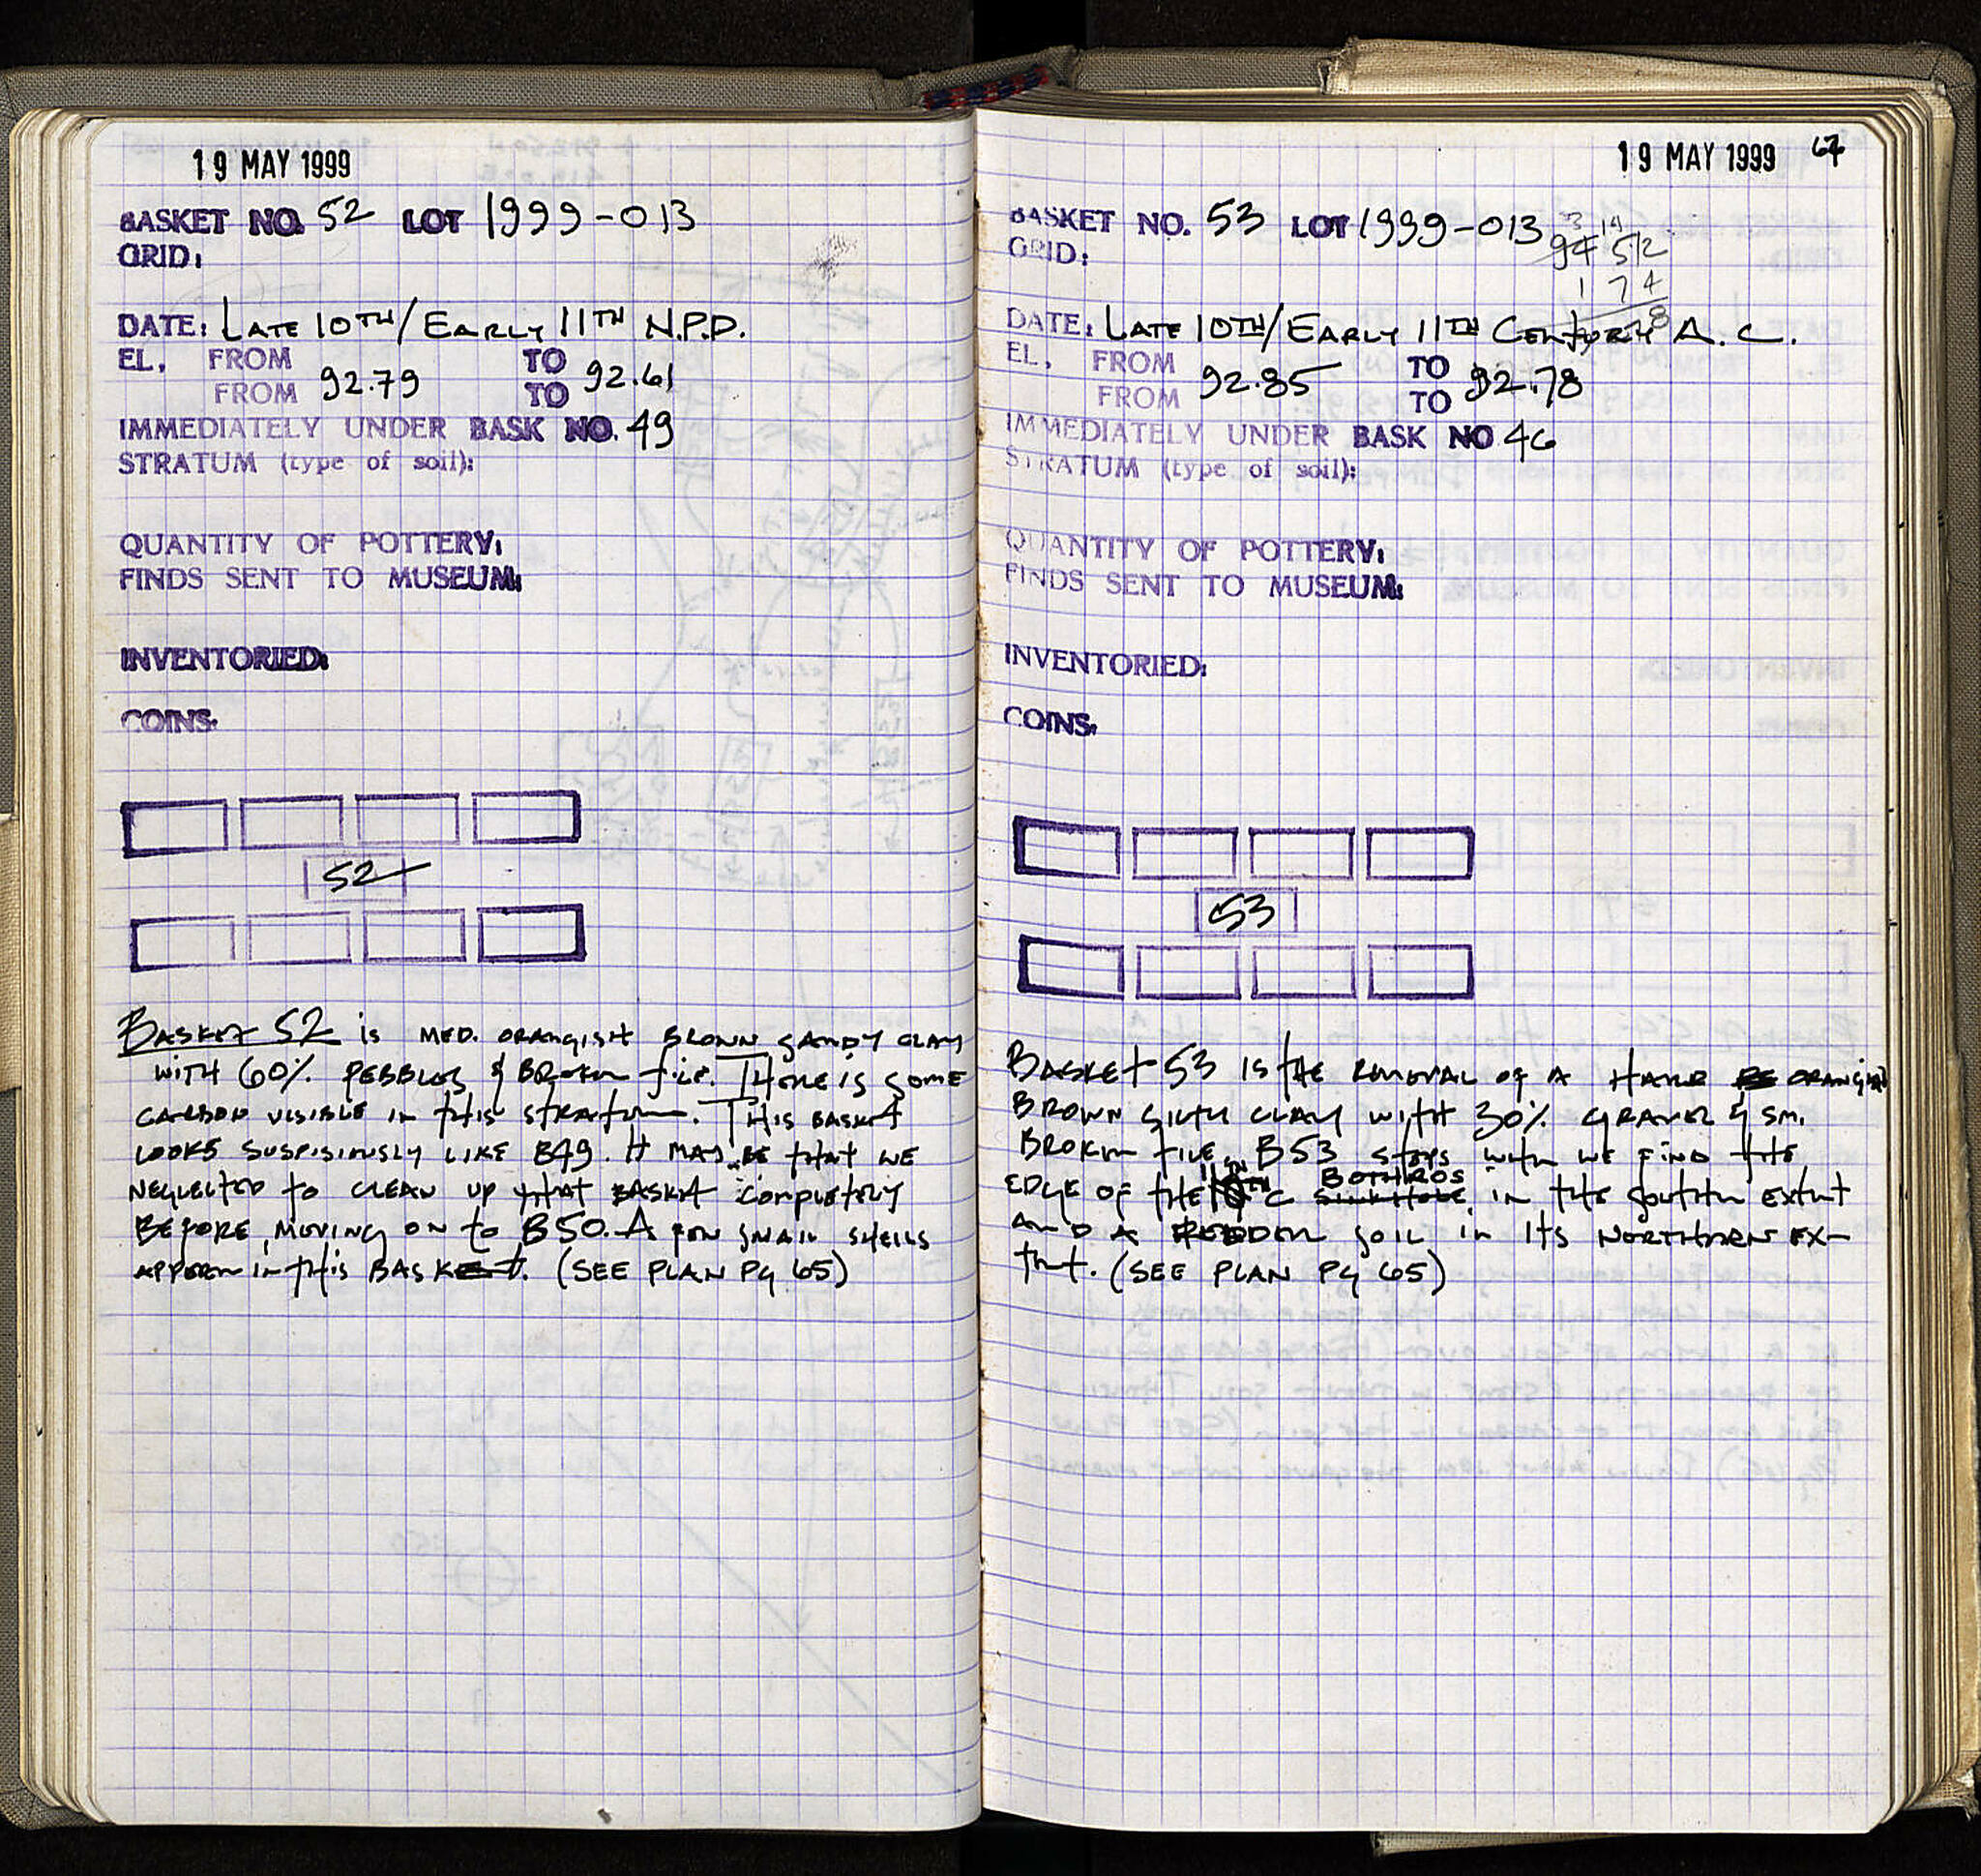 19 MAY 1999
BASKET NO. 52 LOT 1999-013
GRID:
DATE: LATE 10TH/EARLY 11TH N.P.D.
EL. FROM TO
FROM 92.79 TO 92.61
IMMEDIATELY UNDER BASK NO. 49
STRATUM (type of soil):
QUANTITY OF POTTERY:
FINDS SENT TO MUSEUM:
INVENTORIED:
COINS:
52
BASKET 52 IS MED. ORANGISH BROWN SANDY CLAY
WITH 60% PEBBLES & BROKEN TILE. THERE IS SOME
CARBON VISIBLE IN THIS STRATUM. THIS BASKET
LOOKS SUSPISIOUSLY LIKE B49. IT MAY BE THAT WE
NEGLECTED TO CLEAN UP THAT BASKET COMPLETELY
BEFORE MOVING ON TO B50. A FEW SNAIL SHELLS
APPEAR IN THIS BASKET. (SEE PLAN PG 65)
19 MAY 1999 67
BASKET NO. 53 LOT 1999-013
GRID:
94 52
1 74
DATE: LATE 10TH/EARLY 11TH CENTURY A.C.
EL. FROM TO
FROM 92.85 TO 92.78
IMMEDIATELY UNDER BASK NO 46
STRATUM (type of soil):
QUANTITY OF POTTERY:
FINDS SENT TO MUSEUM:
INVENTORIED:
COINS:
53
BASKET 53 IS THE REMOVAL OF A HARD ORANGISH
BROWN SILTY CLAY WITH 30% GRAVEL & SM.
BROKEN TILE. B53 STOPS WHEN WE FIND THE
EDGE OF THE 11TH C BOTHROS IN THE SOUTHERN EXTENT
AND A REDDER SOIL IN ITS NORTHERN EX-
TENT. (SEE PLAN PG 65)